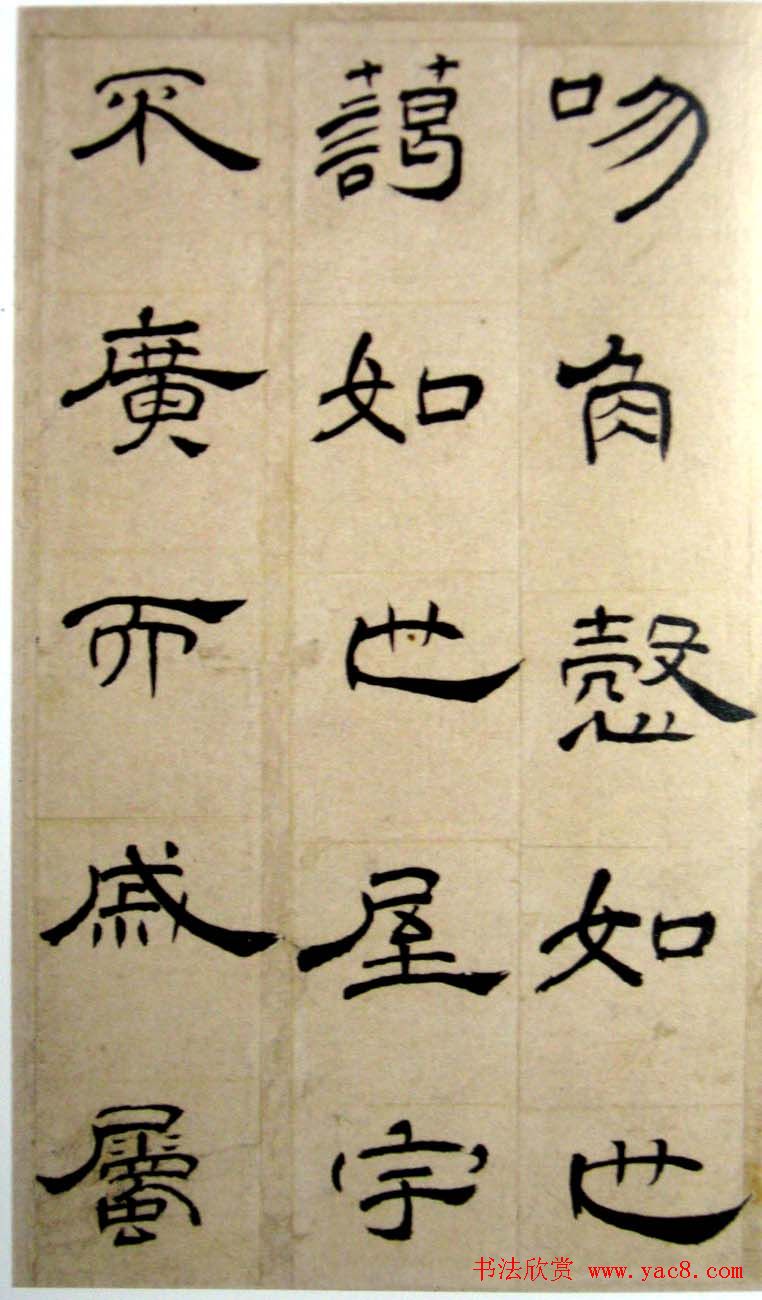 吻角愨如也
藹如也屋宇
不廣而戚屬
书法欣赏 www.yac8.com